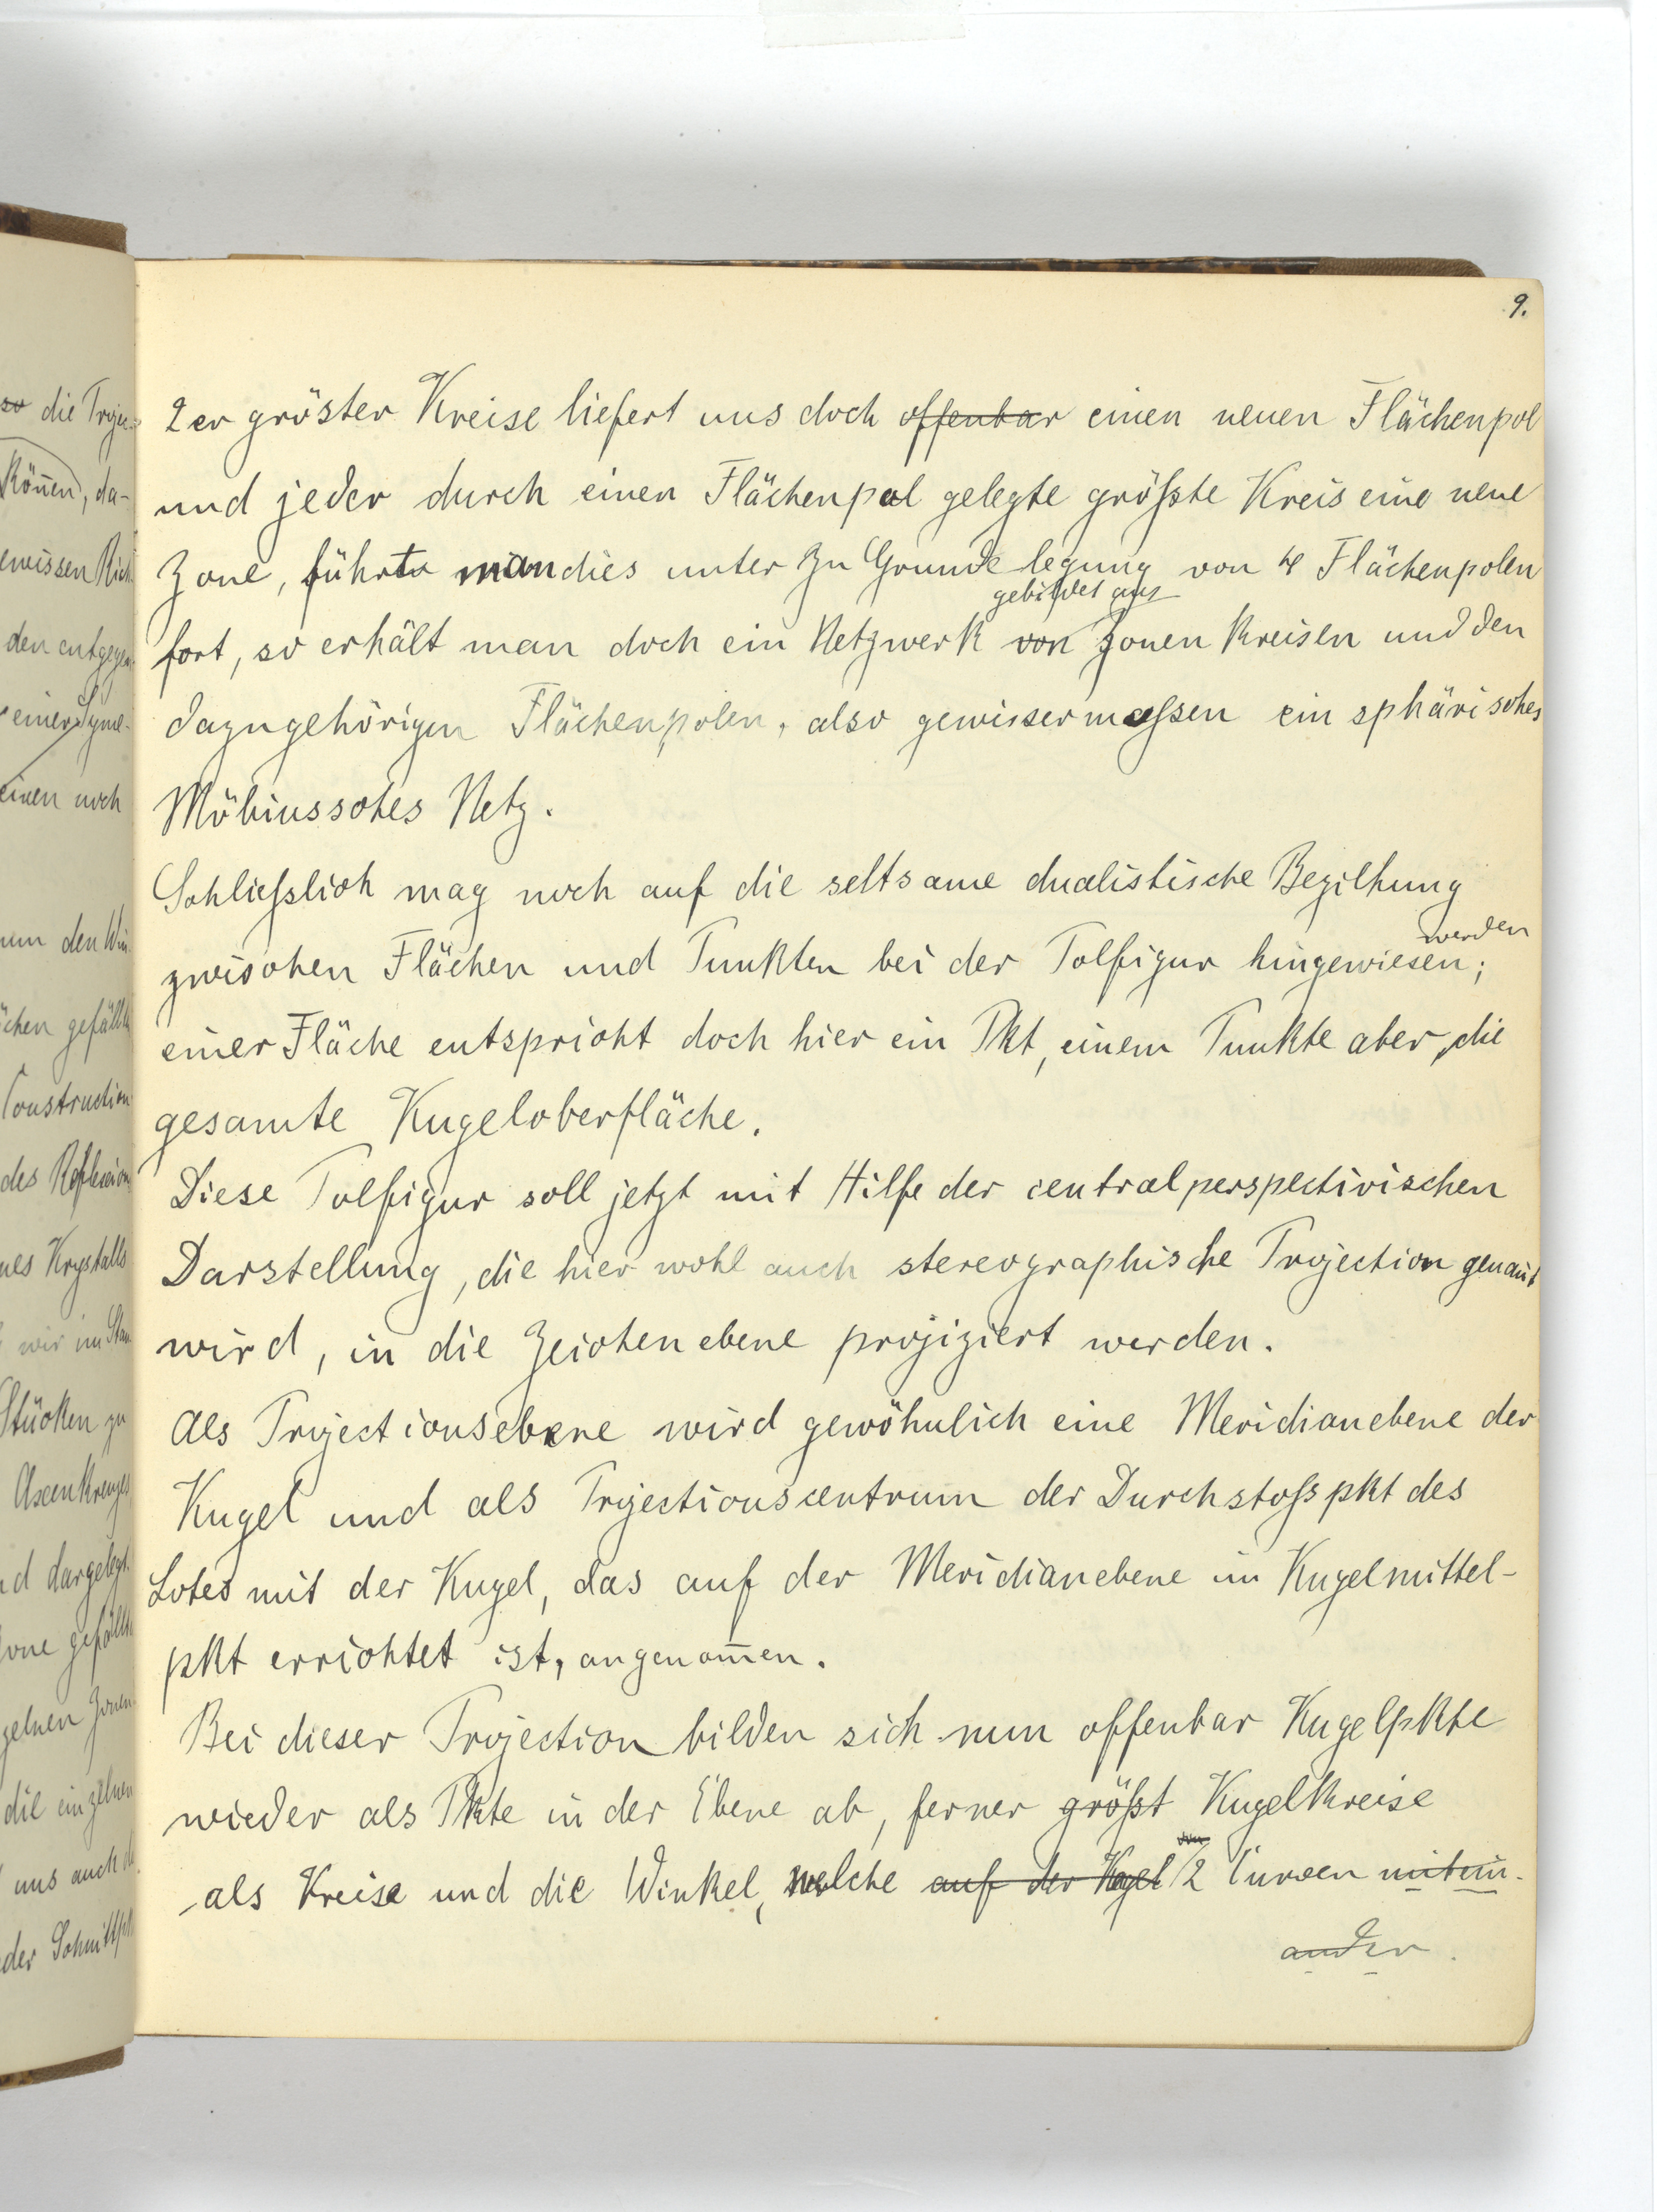 9.
2er gröster Kreise liefert uns doch offenbar einen neuen Flächenpol
und jeder durch einen Flächenpol gelegte größte Kreis eine neue
Zone, führte man dies unter Zu Grunde legung von 4 Flächenpolen
gebildet aus
fort, so erhält man doch ein Netzwerk von Zonen Kreisen und den
dazugehörigen Flächenpolen, also gewissermaßen ein sphärisches
Möbiussches Netz.
Schließlich mag noch auf die seltsame dualistische Beziehung
werden
zwischen Flächen und Punkten bei der Polfigur hingewiesen;
einer Fläche entspricht doch hier ein Pkt, einem Punkte aber, die
gesamte Kugeloberfläche.
Diese Polfigur soll jetzt mit Hilfe der centralperspectivischen
Darstellung, die hier wohl auch stereographische Projection genañt
wird, in die Zeichenebene projiziert werden.
Als Projectionsebene wird gewöhnlich eine Meridianebene der
Kugel und als Projectionscentrum der Durchstoßpkt des
Lotes mit der Kugel, das auf der Meridianebene im Kugelmittel-
pkt errichtet ist, angenom̄en.
Bei dieser Projection bilden sich nun offenbar Kugelpkte
wieder als Pkte in der Ebene ab, ferner größt Kugelkreise
von
als Kreise und die Winkel, welche auf der Kugel 2 Curven mitein-
ander.
so die Projec-
Kön̄en, da-
den entgegen
einer Syme-
einen noch
den Win
gefällt
Construction
des Reflexion
Krystalls
wir im Stan
Stücken zu
Axenkreuzes
dargelegt
gefällt
Zonen
die einzelnen
uns auch
der Schnittpkt